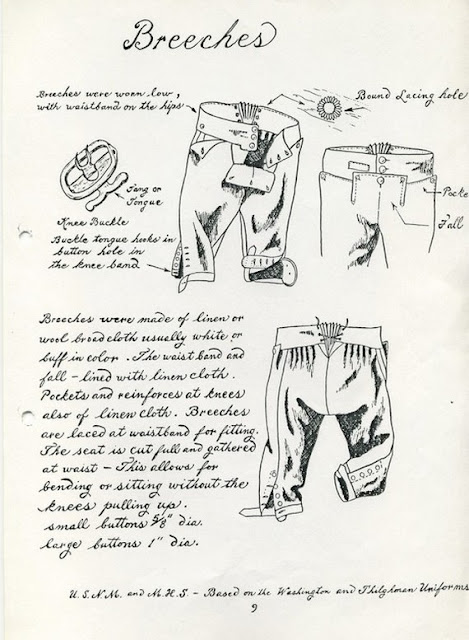 Breeches
Breeches were worn low,
with waistband on the hips
Bound Lacing hole
Tang or
Tongue
Knee Buckle
Buckle tongue hooks in
button hole in
the knee band
Pocke
Fall
Breeches were made of linen or
wool broadcloth usually white or
buff in color. The waist band and
fall - lined with linen cloth.
Pockets and reinforces at knees
also of linen cloth. Breeches
are laced at waistband for fitting.
The seat is cut full and gathered
at waist - This allows for
bending or sitting without the
knees pulling up.
small buttons 5/8" dia.
large buttons 1" dia.
U.S.N.M. and M.H.S - Based on the Washington and Thilghman Uniforms
9